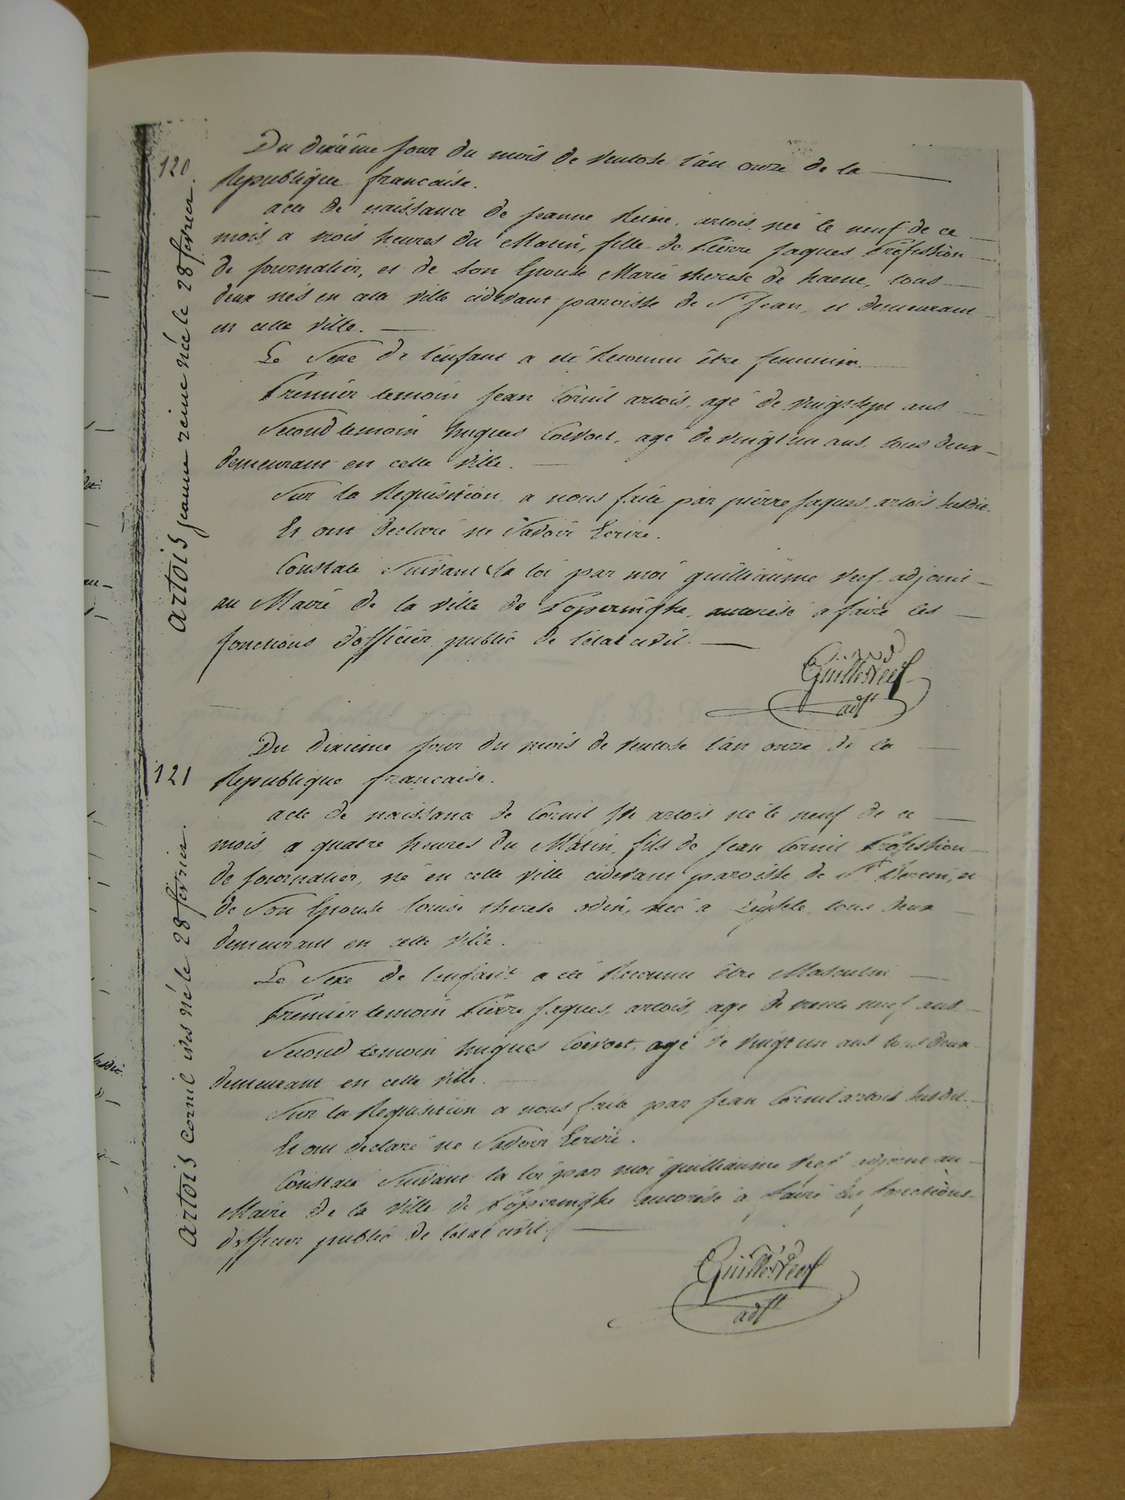 120
Du dixiéme jour du mois de ventose l'an onze de la
Republique francaise.
acte de naissance de jeanne Reine artois née le neuf de ce
mois a trois heures du Matin, fille de Pierre Jaques Profession
de journalier, et de son Epouse Marie therese de haene, tous
deux nés en cette ville cidevant paroisse de St Jean, et demeurant
en cette ville.
Le Sexe de l'enfant a eté Reconnu être feminin.
Premier temoin Jean Cornil artois, agé de vingtsept ans
Second temoin hugues Coevoet, agé de vingt un ans, tous deux
demeurant en cette ville.
Sur la Requisition a nous faite par pierre Jaques artois susdit.
Et ont declaré ne Savoir Ecrire.
Constaté Suivant la loi par moi guilliaume Veef adjoint
au Maire de la ville de Poperinghe, autorisé a faire les
fonctions d'officier public de l'etat civil.
Guill: Veef
adjt
artois jeanne reine née le 28 février.
121
Du dixieme jour du mois de ventose l'an onze de la
Republique française.
acte de naissance de Cornil artois né le neuf de ce
mois a quatre heures du Matin, fils de Jean Cornil Profession
de journalier, né en cette ville cidevant paroisse de St et
de Son Epouse louise therese née a tous deux
demeurant en cette ville.
Le Sexe de l'enfant a eté Reconnu être Masculin
Premier temoin Pierre Jaques artois, agé de trente neuf ans
Second temoin hugues Coevoet, agé de vingt un ans tous deux
demeurant en cette ville.
Sur la Requisition a nous faite par Jean Cornil artois susdit.
Et ont declaré ne Savoir Ecrire.
Constaté Suivant la loi par moi guilliaume Veef adjoint au
Maire de la ville de Poperinghe autorisé a faire les fonctions
d'officier public de l'etat civil.
Guill: Veef
adjt
artois Cornil né le 28 février.